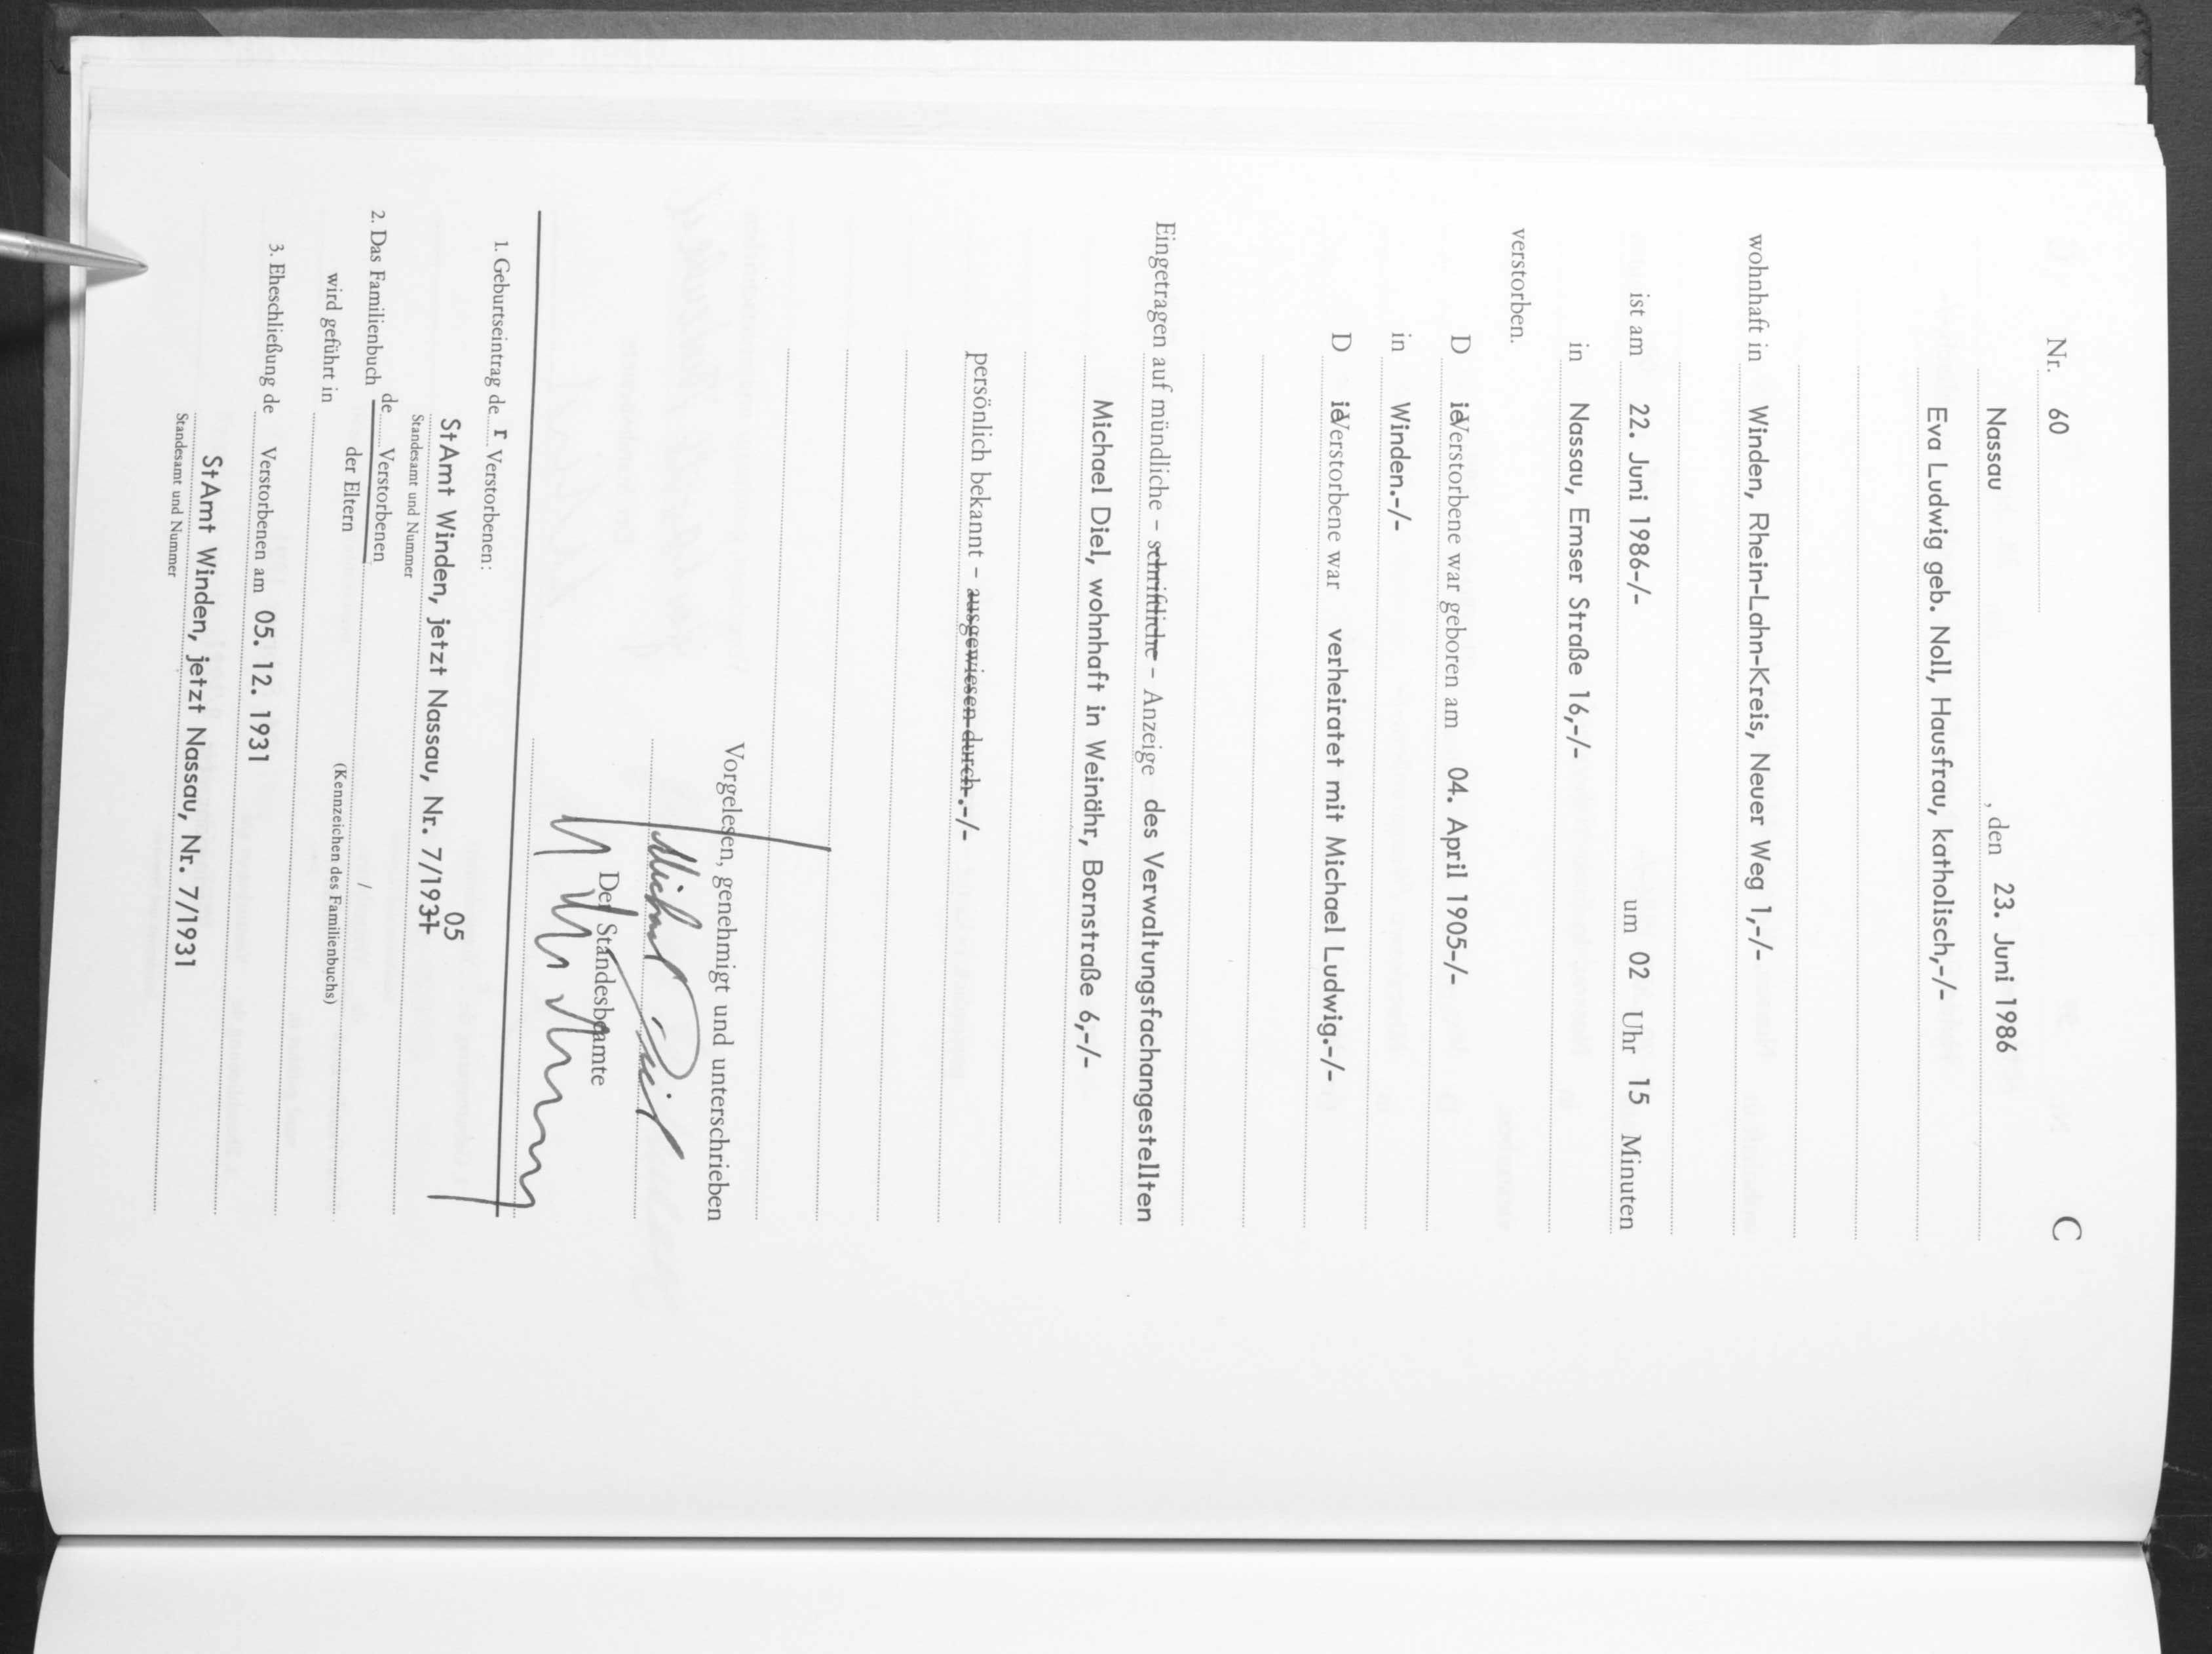 Nr. 60 C
Nassau, den 23. Juni 1986
Eva Ludwig geb. Noll, Hausfrau, katholisch,-/-
wohnhaft in Winden, Rhein-Lahn-Kreis, Neuer Weg 1,-/-
ist am 22. Juni 1986-/- um 02 Uhr 15 Minuten
in Nassau, Emser Straße 16,-/-
verstorben.
Die Verstorbene war geboren am 04. April 1905-/-
in Winden.-/-
Die Verstorbene war verheiratet mit Michael Ludwig.-/-
Eingetragen auf mündliche – schriftliche – Anzeige des Verwaltungsfachangestellten
Michael Diel, wohnhaft in Weinähr, Bornstraße 6,-/-
persönlich bekannt – ausgewiesen durch.-/-
Vorgelesen, genehmigt und unterschrieben
Michael Diel
Der Standesbeamte
1. Geburtseintrag de r Verstorbenen:
05
StAmt Winden, jetzt Nassau, Nr. 7/1931
Standesamt und Nummer
2. Das Familienbuch de Verstorbenen
der Eltern /
wird geführt in
(Kennzeichen des Familienbuchs)
3. Eheschließung de Verstorbenen am 05. 12. 1931
StAmt Winden, jetzt Nassau, Nr. 7/1931
Standesamt und Nummer